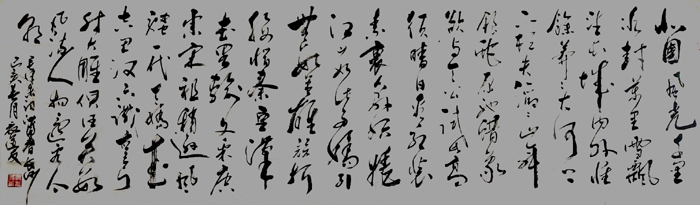 北国风光千里
冰封万里雪飘
望长城内外惟
余莽莽大河上
下顿失滔滔山舞
银蛇原驰蜡象
欲与天公试比高
须晴日看红装
素裹分外妖娆
江山如此多娇引
无数英雄竞折
腰惜秦皇汉
武略输文采唐
宗宋祖稍逊风
骚一代天骄成
吉思汗只识弯弓
射大雕俱往矣数
风流人物还看今
朝